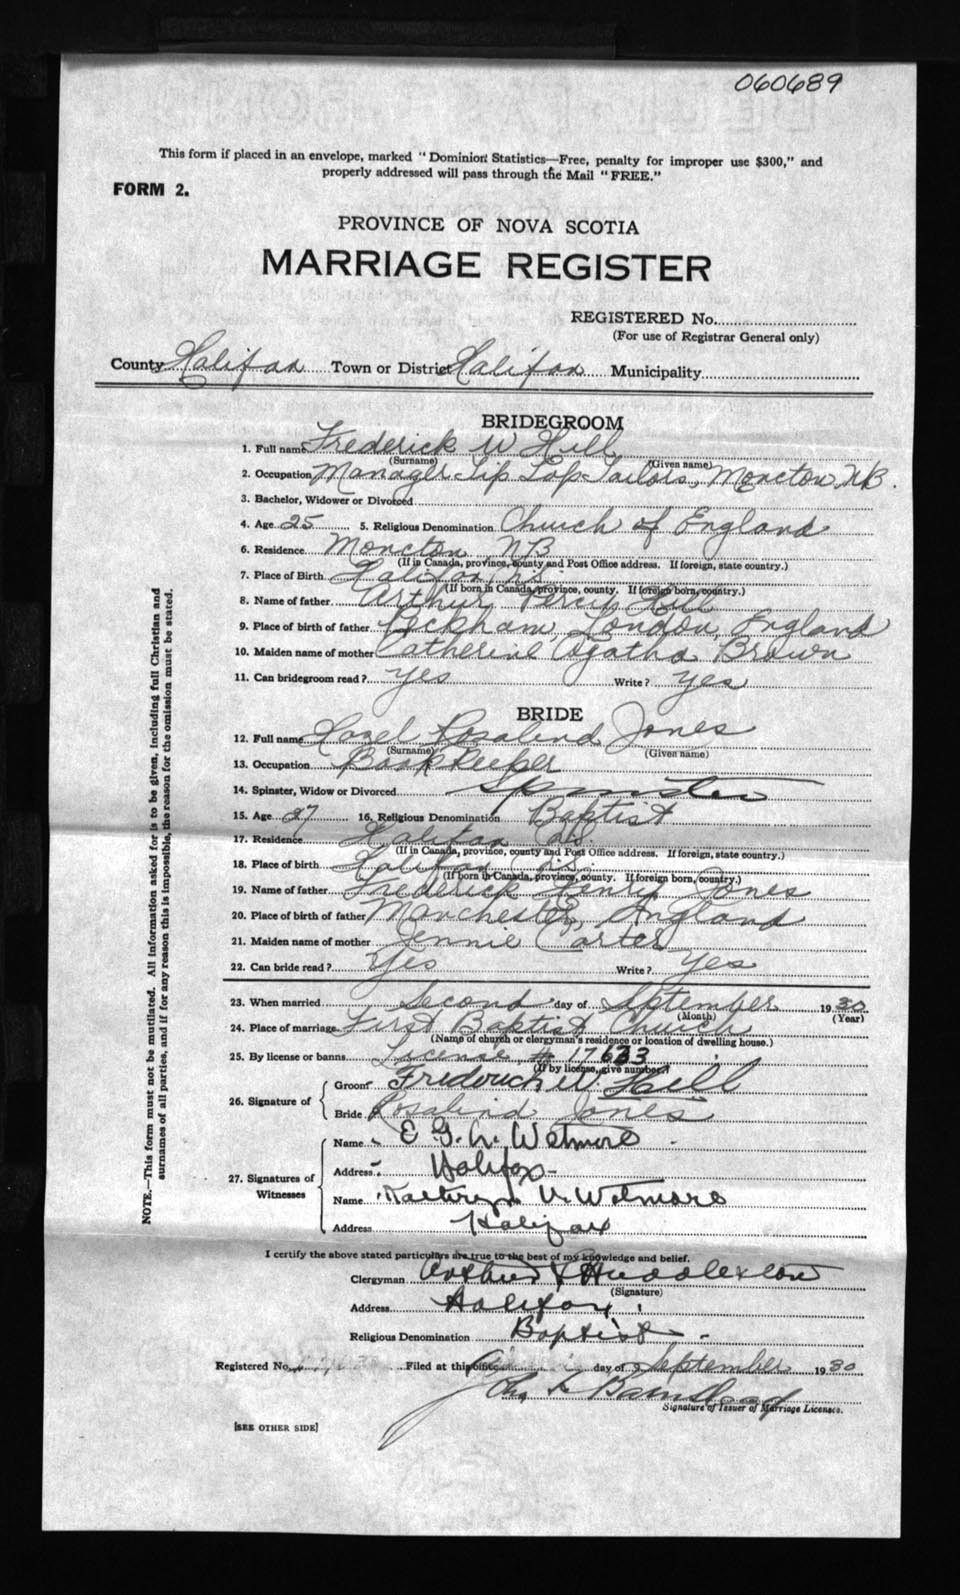 060689
This form if placed in an envelope, marked "Dominion Statistics—Free, penalty for improper use $300," and
properly addressed will pass through the Mail "FREE."
FORM 2.
PROVINCE OF NOVA SCOTIA
MARRIAGE REGISTER
REGISTERED No.
(For use of Registrar General only)
County Halifax Town or District Halifax Municipality
BRIDEGROOM
1. Full name Frederick W Hill
(Surname) (Given name)
2. Occupation Manager Tip Top Tailors, Moncton, N.B.
3. Bachelor, Widower or Divorced
4. Age 25 5. Religious Denomination Church of England
6. Residence Moncton NB
(If in Canada, province, county and Post Office address. If foreign, state country.)
7. Place of Birth Halifax, N.S.
(If born in Canada, province, county. If foreign born, country.)
8. Name of father Arthur Percy Hill
9. Place of birth of father Peckham, London, England
10. Maiden name of mother Catherine Agatha Brown
11. Can bridegroom read? yes Write? yes
BRIDE
12. Full name Hazel Rosalind Jones
(Surname) (Given name)
13. Occupation Book Keeper
14. Spinster, Widow or Divorced Spinster
15. Age 27 16. Religious Denomination Baptist
17. Residence Halifax N.S.
(If in Canada, province, county and Post Office address. If foreign, state country.)
18. Place of birth Halifax N.S.
(If born in Canada, province, county. If foreign born, country.)
19. Name of father Frederick Henry Jones
20. Place of birth of father Manchester, England
21. Maiden name of mother Jennie Carter
22. Can bride read? Yes Write? Yes
23. When married Second day of September 1930
(Month) (Year)
24. Place of marriage First Baptist Church
(Name of church or clergyman's residence or location of dwelling house.)
25. By license or banns License, # 17633
(If by license, give number.)
26. Signature of Groom Frederick W. Hill
Bride Rosalind Jones
27. Signatures of Witnesses
Name Wetmore
Address Halifax
Name Kathryn V. Wetmore
Address Halifax
I certify the above stated particulars are true to the best of my knowledge and belief.
Clergyman Arthur Huddleston
(Signature)
Address Halifax
Religious Denomination Baptist
Registered No. Filed at this office day of September 1930
Signature of Issuer of Marriage Licenses.
[SEE OTHER SIDE]
NOTE.—This form must not be mutilated. All information asked for is to be given, including full Christian and
surnames of all parties, and if for any reason this is impossible, the reason for the omission must be stated.